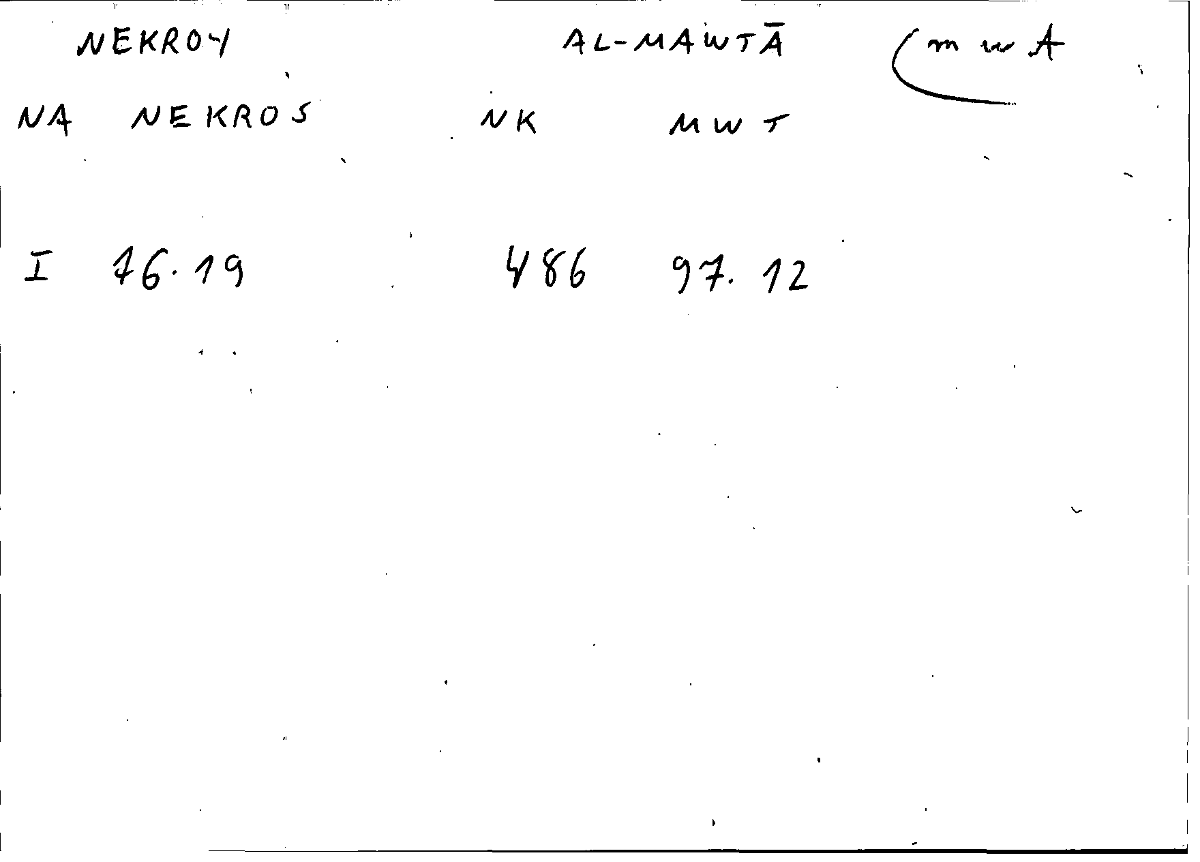 NEKROY AL-MAWTĀ m w A
NA NEKROS NK MWT
I 76.19 486 97.12